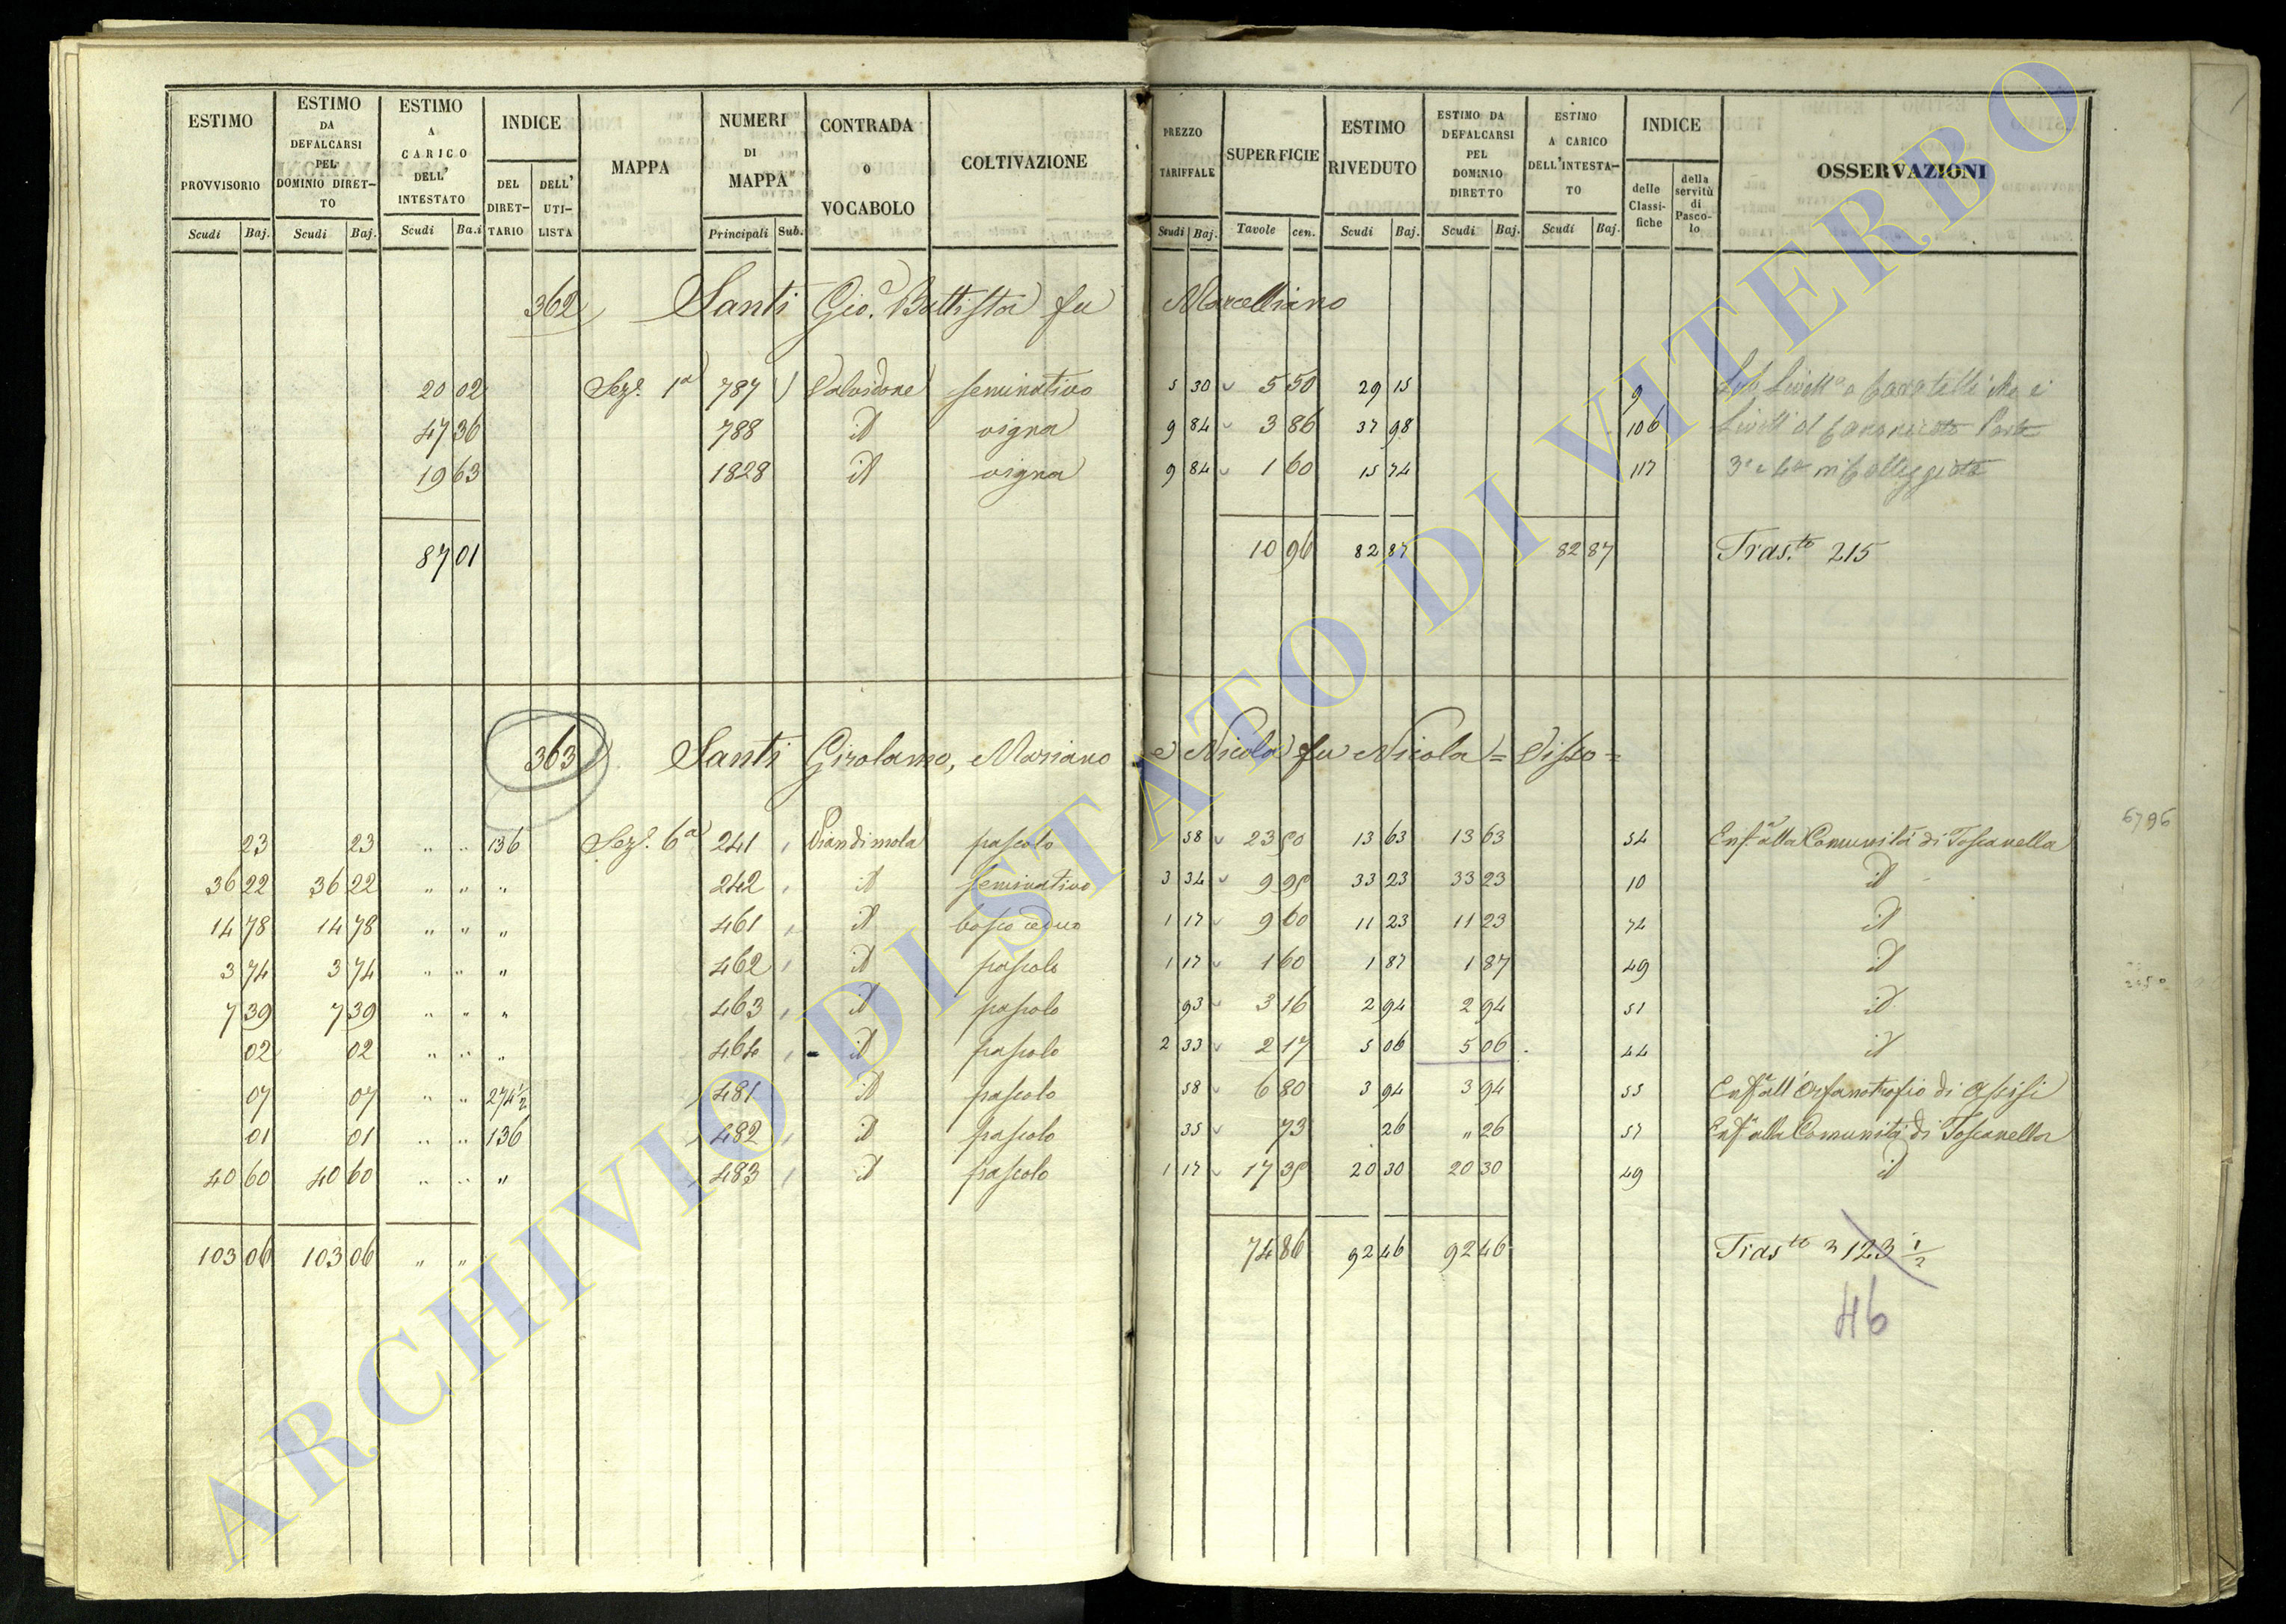 ESTIMO PROVVISORIO Scudi Baj. ESTIMO DA DEFALCARSI PEL DOMINIO DIRET-TO Scudi Baj. ESTIMO A CARICO DELL' INTESTATO Scudi Ba.i INDICE DEL DIRET-TARIO DELL' UTI-LISTA MAPPA NUMERI DI MAPPA Principali Sub. CONTRADA O VOCABOLO COLTIVAZIONE PREZZO TARIFFALE Scudi Baj. SUPERFICIE Tavole cen. ESTIMO RIVEDUTO Scudi Baj. ESTIMO DA DEFALCARSI PEL DOMINIO DIRETTO Scudi Baj. ESTIMO A CARICO DELL'INTESTA-TO Scudi Baj. INDICE delle Classi-fiche della servitù di Pasco-lo OSSERVAZIONI
362 Santi Gio. Battista fu Marcelliano
20 02 Sez.e 1a 787 Valvidone seminativo 5 30 5 50 29 15 9
47 36 788 id vigna 9 84 3 86 37 98 106
19 63 1828 id vigna 9 84 1 60 15 74 117
87 01 10 96 82 87 82 87 Tras.to 215
363 Santi Girolamo, Mariano e Nicola fu Nicola = Visto =
23 23 " " 136 Sez.e 6a 241 Piandimola pascolo 58 23 50 13 63 13 63 54 Enf.a alla Comunità di Toscanella 6796
36 22 36 22 " " " 242 id seminativo 3 34 9 95 33 23 33 23 10 id
14 78 14 78 " " " 461 id bosco ceduo 1 17 9 60 11 23 11 23 74 id
3 74 3 74 " " " 462 id pascolo 1 17 1 60 1 87 1 87 49 id
7 39 7 39 " " " 463 id pascolo 93 3 16 2 94 2 94 51 id
02 02 " " " 464 id pascolo 2 33 2 17 5 06 5 06 44 id
07 07 " " 274 1/2 481 id pascolo 58 6 80 3 94 3 94 55 Enf.a all'Orfanotrofio di Assisi
01 01 " " 136 482 id pascolo 35 73 26 " 26 57 Enf.a alla Comunità di Toscanella
40 60 40 60 " " " 483 id pascolo 1 17 17 35 20 30 20 30 49 id
103 06 103 06 " " 74 86 92 46 92 46 Tras.to 3123 1/2
46
ARCHIVIO DI STATO DI VITERBO